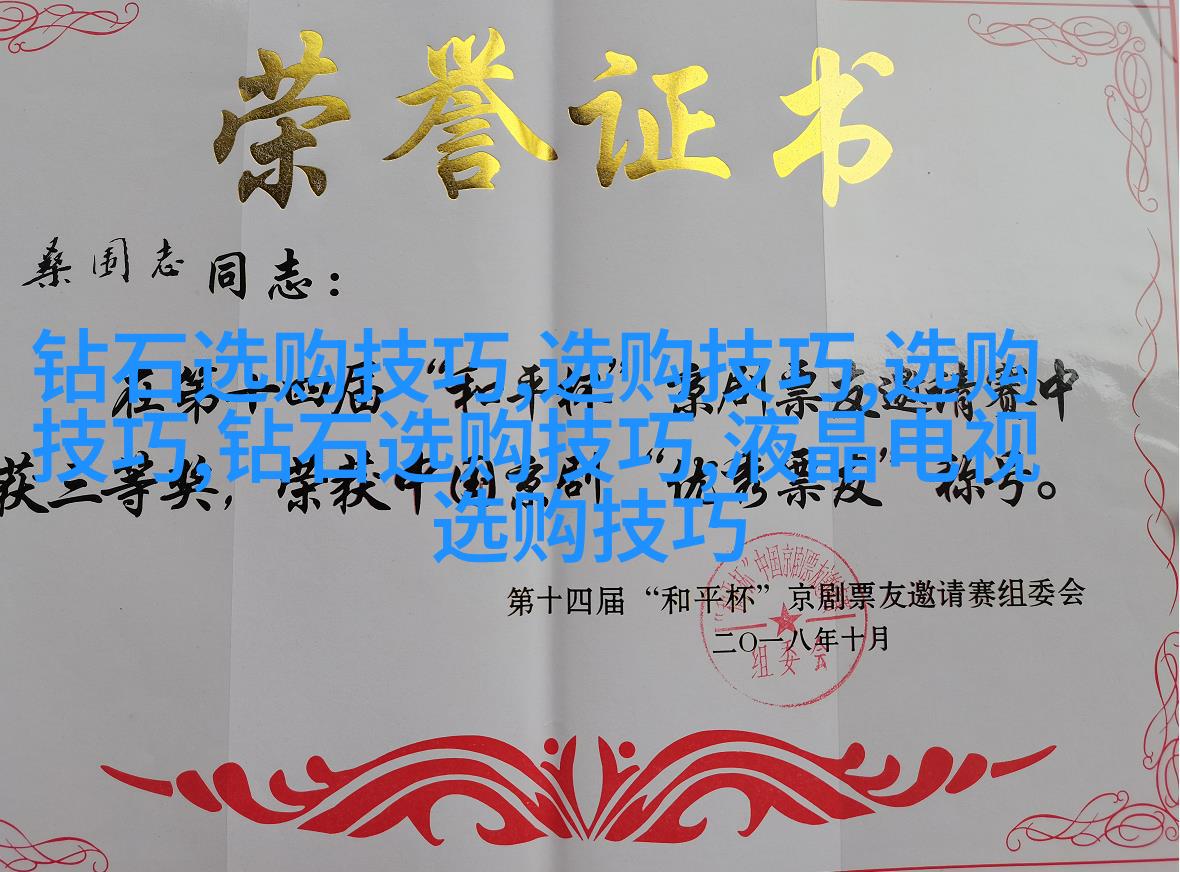 荣誉证书
桑围志同志：
钻石选购技巧,选购技巧,选购
在第十四届“和平杯”京剧票友邀请赛中
技巧,钻石选购技巧,液晶电视
获三等奖，荣获中国京剧“优秀票友”称号。
选购技巧
第十四届“和平杯”京剧票友邀请赛组委会
二〇一八年十月
组委会